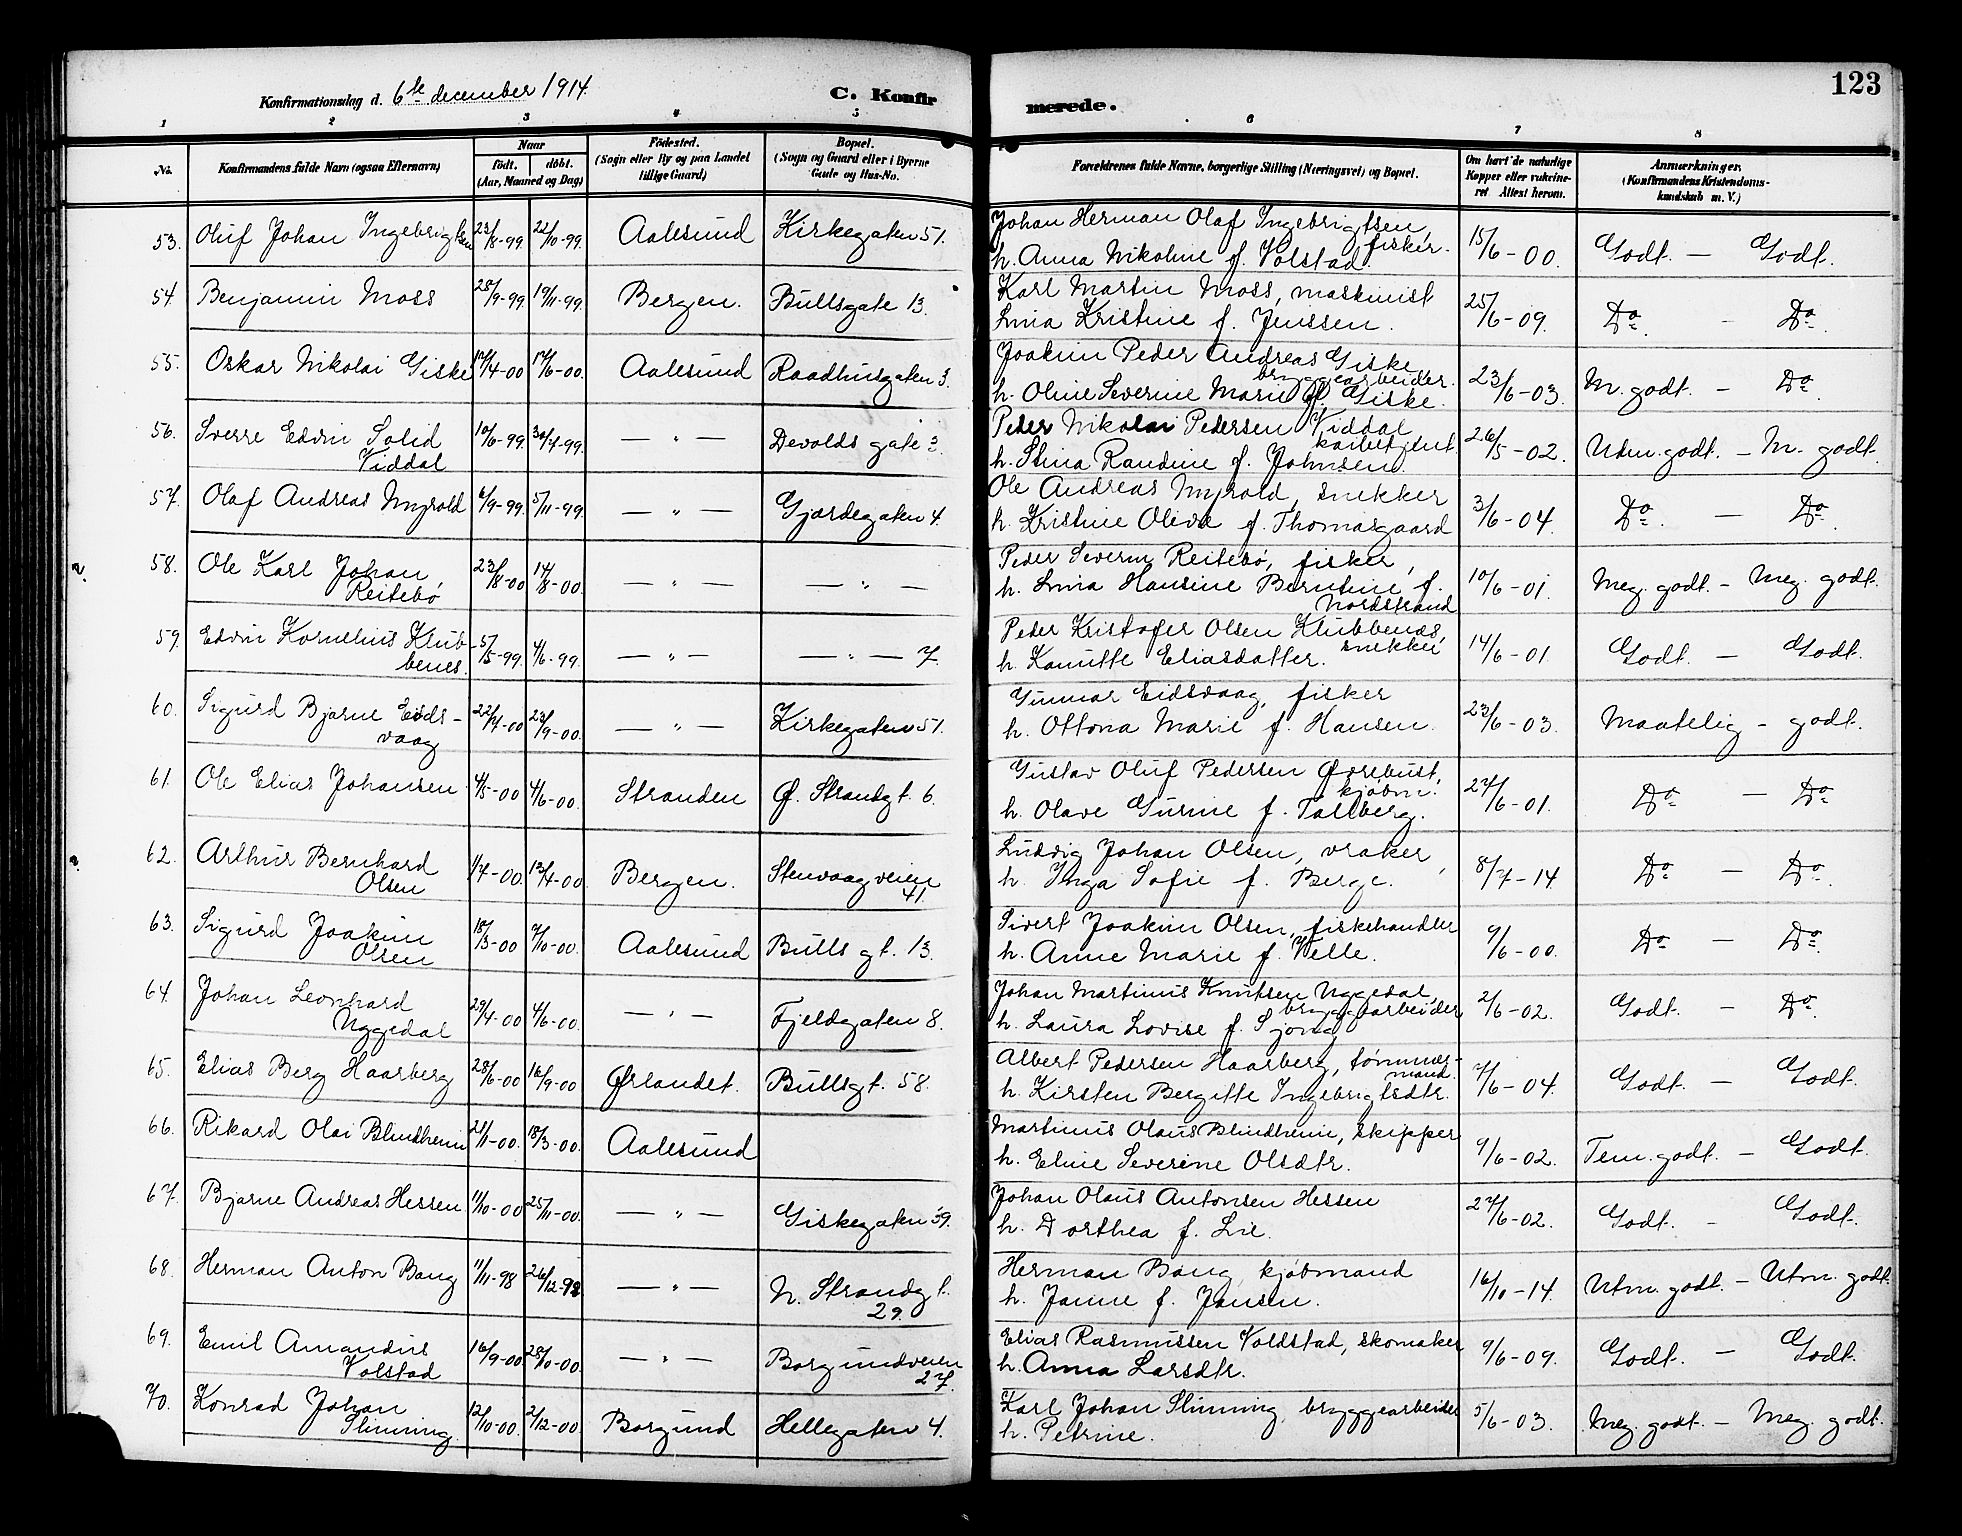 Konfirmationsdag d. 6te december 1914. C. Konfirmerede. 123
1 2 3 4 5 6 7 8
No. Konfirmandens fulde Navn (ogsaa Efternavn) Naar født. døbt. (Aar, Maaned og Dag) Fødested. (Sogn eller By og paa Landet tillige Gaard) Bopæl. (Sogn og Gaard eller i Byerne Gade og Hus-No. Forældrenes fulde Navne, borgerlige Stilling (Næringsvei) og Bopæl. Om havt de naturlige Kopper eller vakcineret Attest herom. Anmærkninger, (Konfirmandens Kristendomskundskab m. V.)
53. Oluf Johan Ingebrigtsen 23/8-99 22/10-99. Aalesund Kirkegaten 51. Johan Herman Olaf Ingebrigtsen, fisker. 15/6-00. Godt. — Godt.
h. Anna Nikoline f. Volstad.
54. Benjamin Moss 25/9-99 19/11-99. Bergen. Bullsgate 13. Karl Martin Moss, maskinist 25/6-09. Do — Do.
Lina Kristine f. Jenssen.
55. Oskar Nikolai Giske 17/4-00 17/6-00. Aalesund Raadhusgaten 3. Joakim Peder Andreas Giske bryggearbeider. 23/6-03. M. godt. — Do
h. Oline Severine Marie f. Giske.
56. Sverre Edvin Solid 10/6-99 30/7-99. — " — Devolds gate 3. Peder Nikolai Pedersen Viddal 26/5-02. Utm. godt. — M. godt.
Viddal h. Stina Randine f. Johnsen.
57. Olaf Andreas Myrold 6/9-99. 5/11-99. — " — Gjærdegaten 4. Ole Andreas Myrold, snekker 3/6-04. Do. — Do.
h. Kristine Oliva f. Thomasgaard
58. Ole Karl Johan 23/8-00 14/8-00. — " — — " — Peder Severin Reitebø, fisker, 10/6-01. Meg. godt. — Meg. godt.
Reitebø h. Lina Hansine Berntine f. Nordstrand
59. Edvin Kornelius Klub- 5/5-99. 4/6-99. — " — — " — 7. Peder Kristofer Olsen Klubbenes, snekker 14/6-01. Godt — Godt.
benes. h. Kanutte Eliasdatter.
60. Sigurd Bjarne Eids- 22/7-00 23/9-00. — " — Kirkegaten 51. Gunnar Eidsvaag, fisker 23/6-03. Maatelig — godt.
vaag h. Ottona Marie f. Hansen.
61. Ole Elias Johansen 4/5-00 4/6-00. Stranden Ø. Strandgt. 6. Gustav Oluf Pedersen Øvrebust, kjøbm. 27/6-01. Do — Do
h. Olave Gurine f. Tallberg.
62. Arthur Bernhard 13/4-00. Bergen. Stenvaagveien Ludvig Johan Olsen, vraker, 8/7-14. Do — Do.
Olsen 41. h. Inga Sofie f. Berge.
63. Sigurd Joakim 18/3-00 7/10-00. Aalesund Bulls gt. 13. Sivert Joakim Olsen, fiskehandler 9/6-00. Do — Do.
Olsen h. Anne Marie f. Velle.
64. Johan Leonhard 29/4-00 4/6-00. — " — Fjeldgaten 8. Johan Martinus Knutsen Uggedal, bryggearbeider 2/6-02. Godt — Do.
Uggedal h. Laura Lovise f. Sjong
65. Elias Berg Haarberg 28/6-00 16/9-00 Ørlandet. Bullsgt. 58. Albert Pedersen Haarberg, tømmermand. 7/6-04. Godt. — Godt.
h. Kirsten Bergitte Ingebrigtsdtr.
66. Rikard Olai Blindheim 21/1-00. 18/3-00. Aalesund Martinus Olaus Blindheim, skipper 9/6-02. Tem. godt. — Godt.
h. Eline Severine Olsdtr.
67. Bjarne Andreas Hessen 11/10-00 25/11-00. — " — Giskegaten 39. Johan Olaus Antonsen Hessen 27/6-02. Godt. — Godt.
h. Dorthea f. Lie.
68. Herman Anton Bang 11/11-98 26/12-98 — " — N. Strandgt. Herman Bang, kjøbmand 16/10-14. Utm. godt. — Utm. godt.
29. h. Janne f. Jansen.
69. Emil Amandus 16/9-00 28/10-00. — " — Borgundveien Elias Rasmussen Voldstad, skomaker 9/6-09. Godt. — Godt.
Volstad 27. h. Anna Larsdtr.
70. Konrad Johan 12/10-00. 2/12-00 Borgund Hellegaten 4. Karl Johan Slinning, bryggearbeider 5/6-03. Meg. godt. — Meg. godt.
Slinning. h. Petrine.